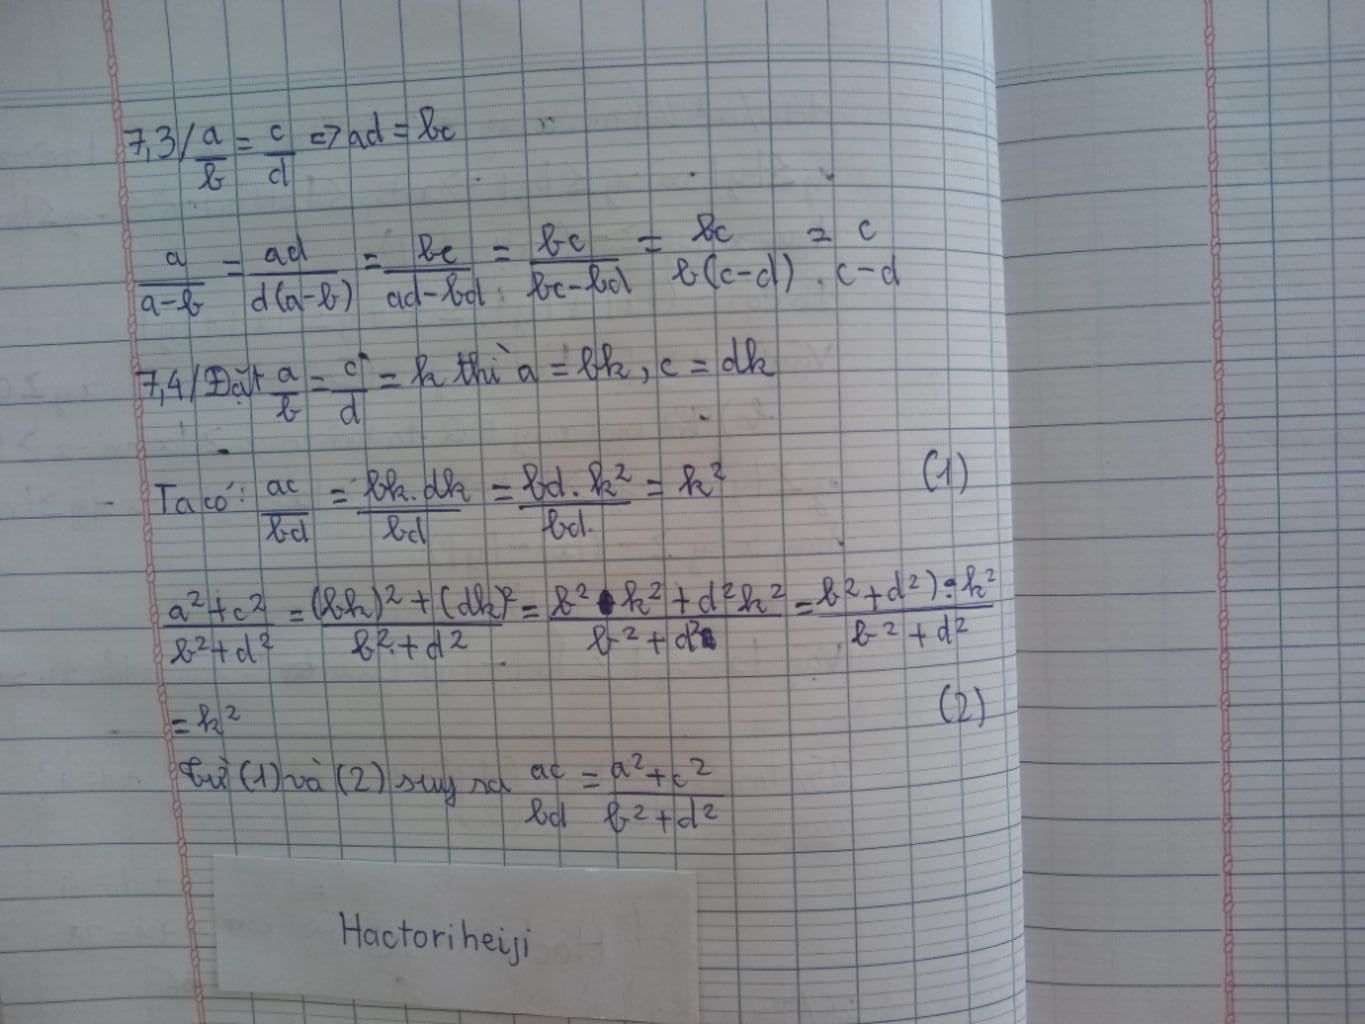 7,3/ a/b = c/d => ad = bc
a/(a-b) = ad/(d(a-b)) = bc/(ad-bd) = bc/(bc-bd) = bc/(b(c-d)) = c/(c-d)
7,4/ Đặt a/b = c/d = k thì a = bk, c = dk
Ta có: ac/bd = bk.dk/bd = bd.k²/bd = k² (1)
(a²+c²)/(b²+d²) = ((bk)²+(dk)²)/(b²+d²) = (b².k²+d²k²)/(b²+d²) = b²+d²).k²/(b²+d²)
= k² (2)
Từ (1) và (2) suy ra ac/bd = (a²+c²)/(b²+d²)
Hactoriheiji